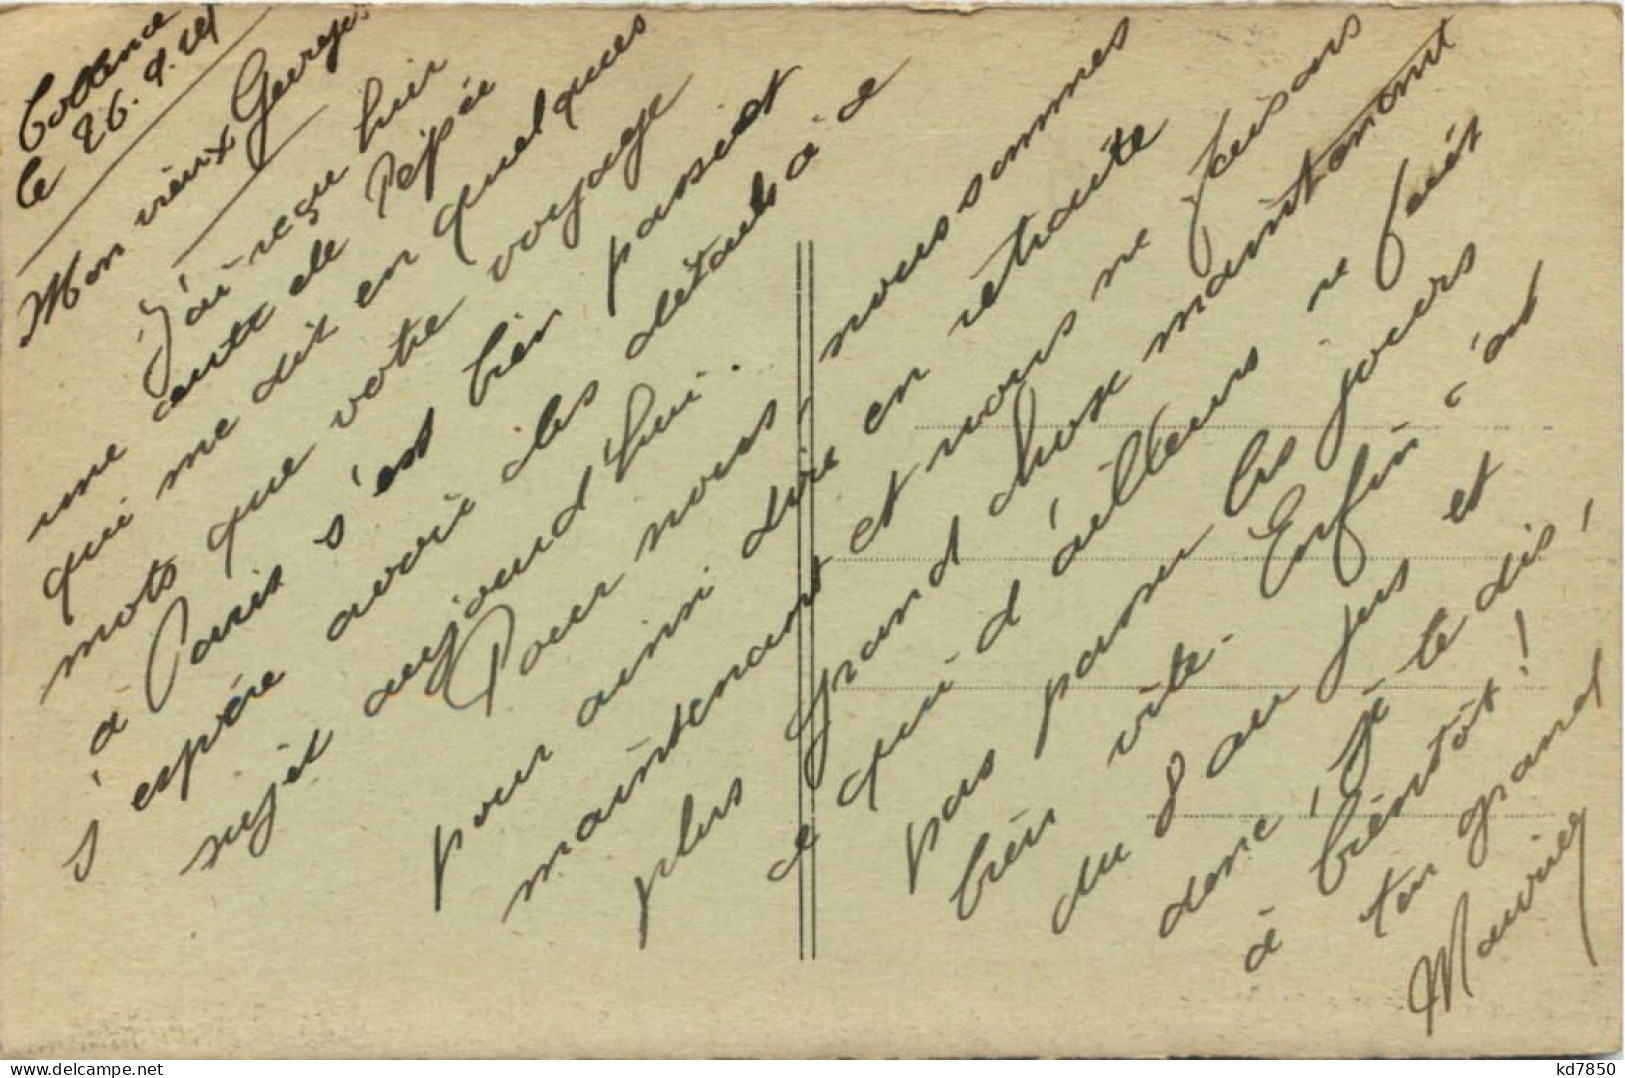 Coblence
le 26.9.24
Mon vieux Georges
J'ai reçu hier
une carte de Pépée
qui me dit en quelques
mots que votre voyage
à Paris s'est bien passé et
j'espère avoir des détails à ce
sujet aujourd'hui.
Pour nous, nous sommes
pour ainsi dire en retraite
maintenant et nous ne faisons
plus grand chose maintenant
ce qui d'ailleurs ne fait
pas passer les jours
bien vite. Enfin c'est
du 8 au jus et
donc, je te dis,
à bientôt!
ton grand
Maurice
kd7850